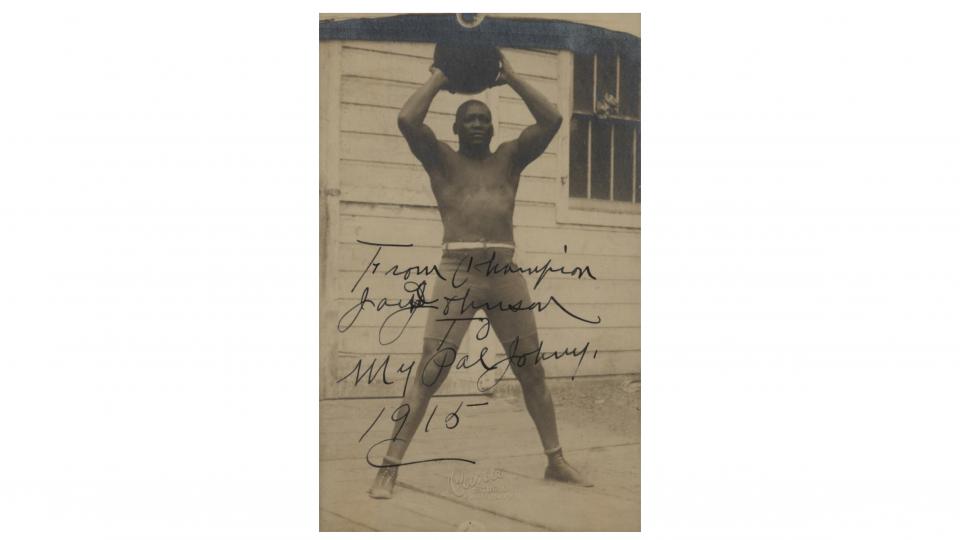 From Champion
Jack Johnson
To
My Pal Johny,
1915